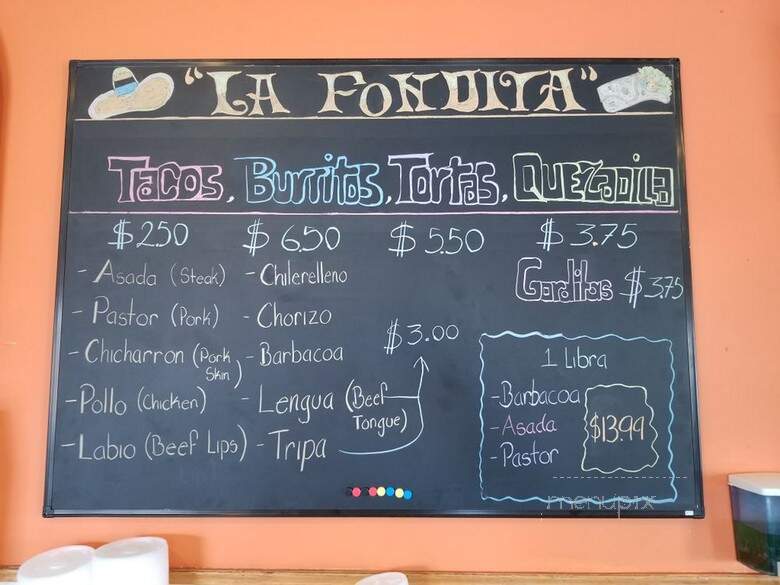 "LA FONDITA"
Tacos, Burritos, Tortas, Quezadilla
$2.50 $6.50 $5.50 $3.75
Gorditas $3.75
- Asada (Steak)
- Pastor (Pork)
- Chicharron (Pork Skin)
- Pollo (Chicken)
- Labio (Beef Lips)
- Chilerelleno
- Chorizo
- Barbacoa
- Lengua (Beef Tongue)
- Tripa
$3.00
1 Libra
- Barbacoa
- Asada
- Pastor
$13.99
menupix